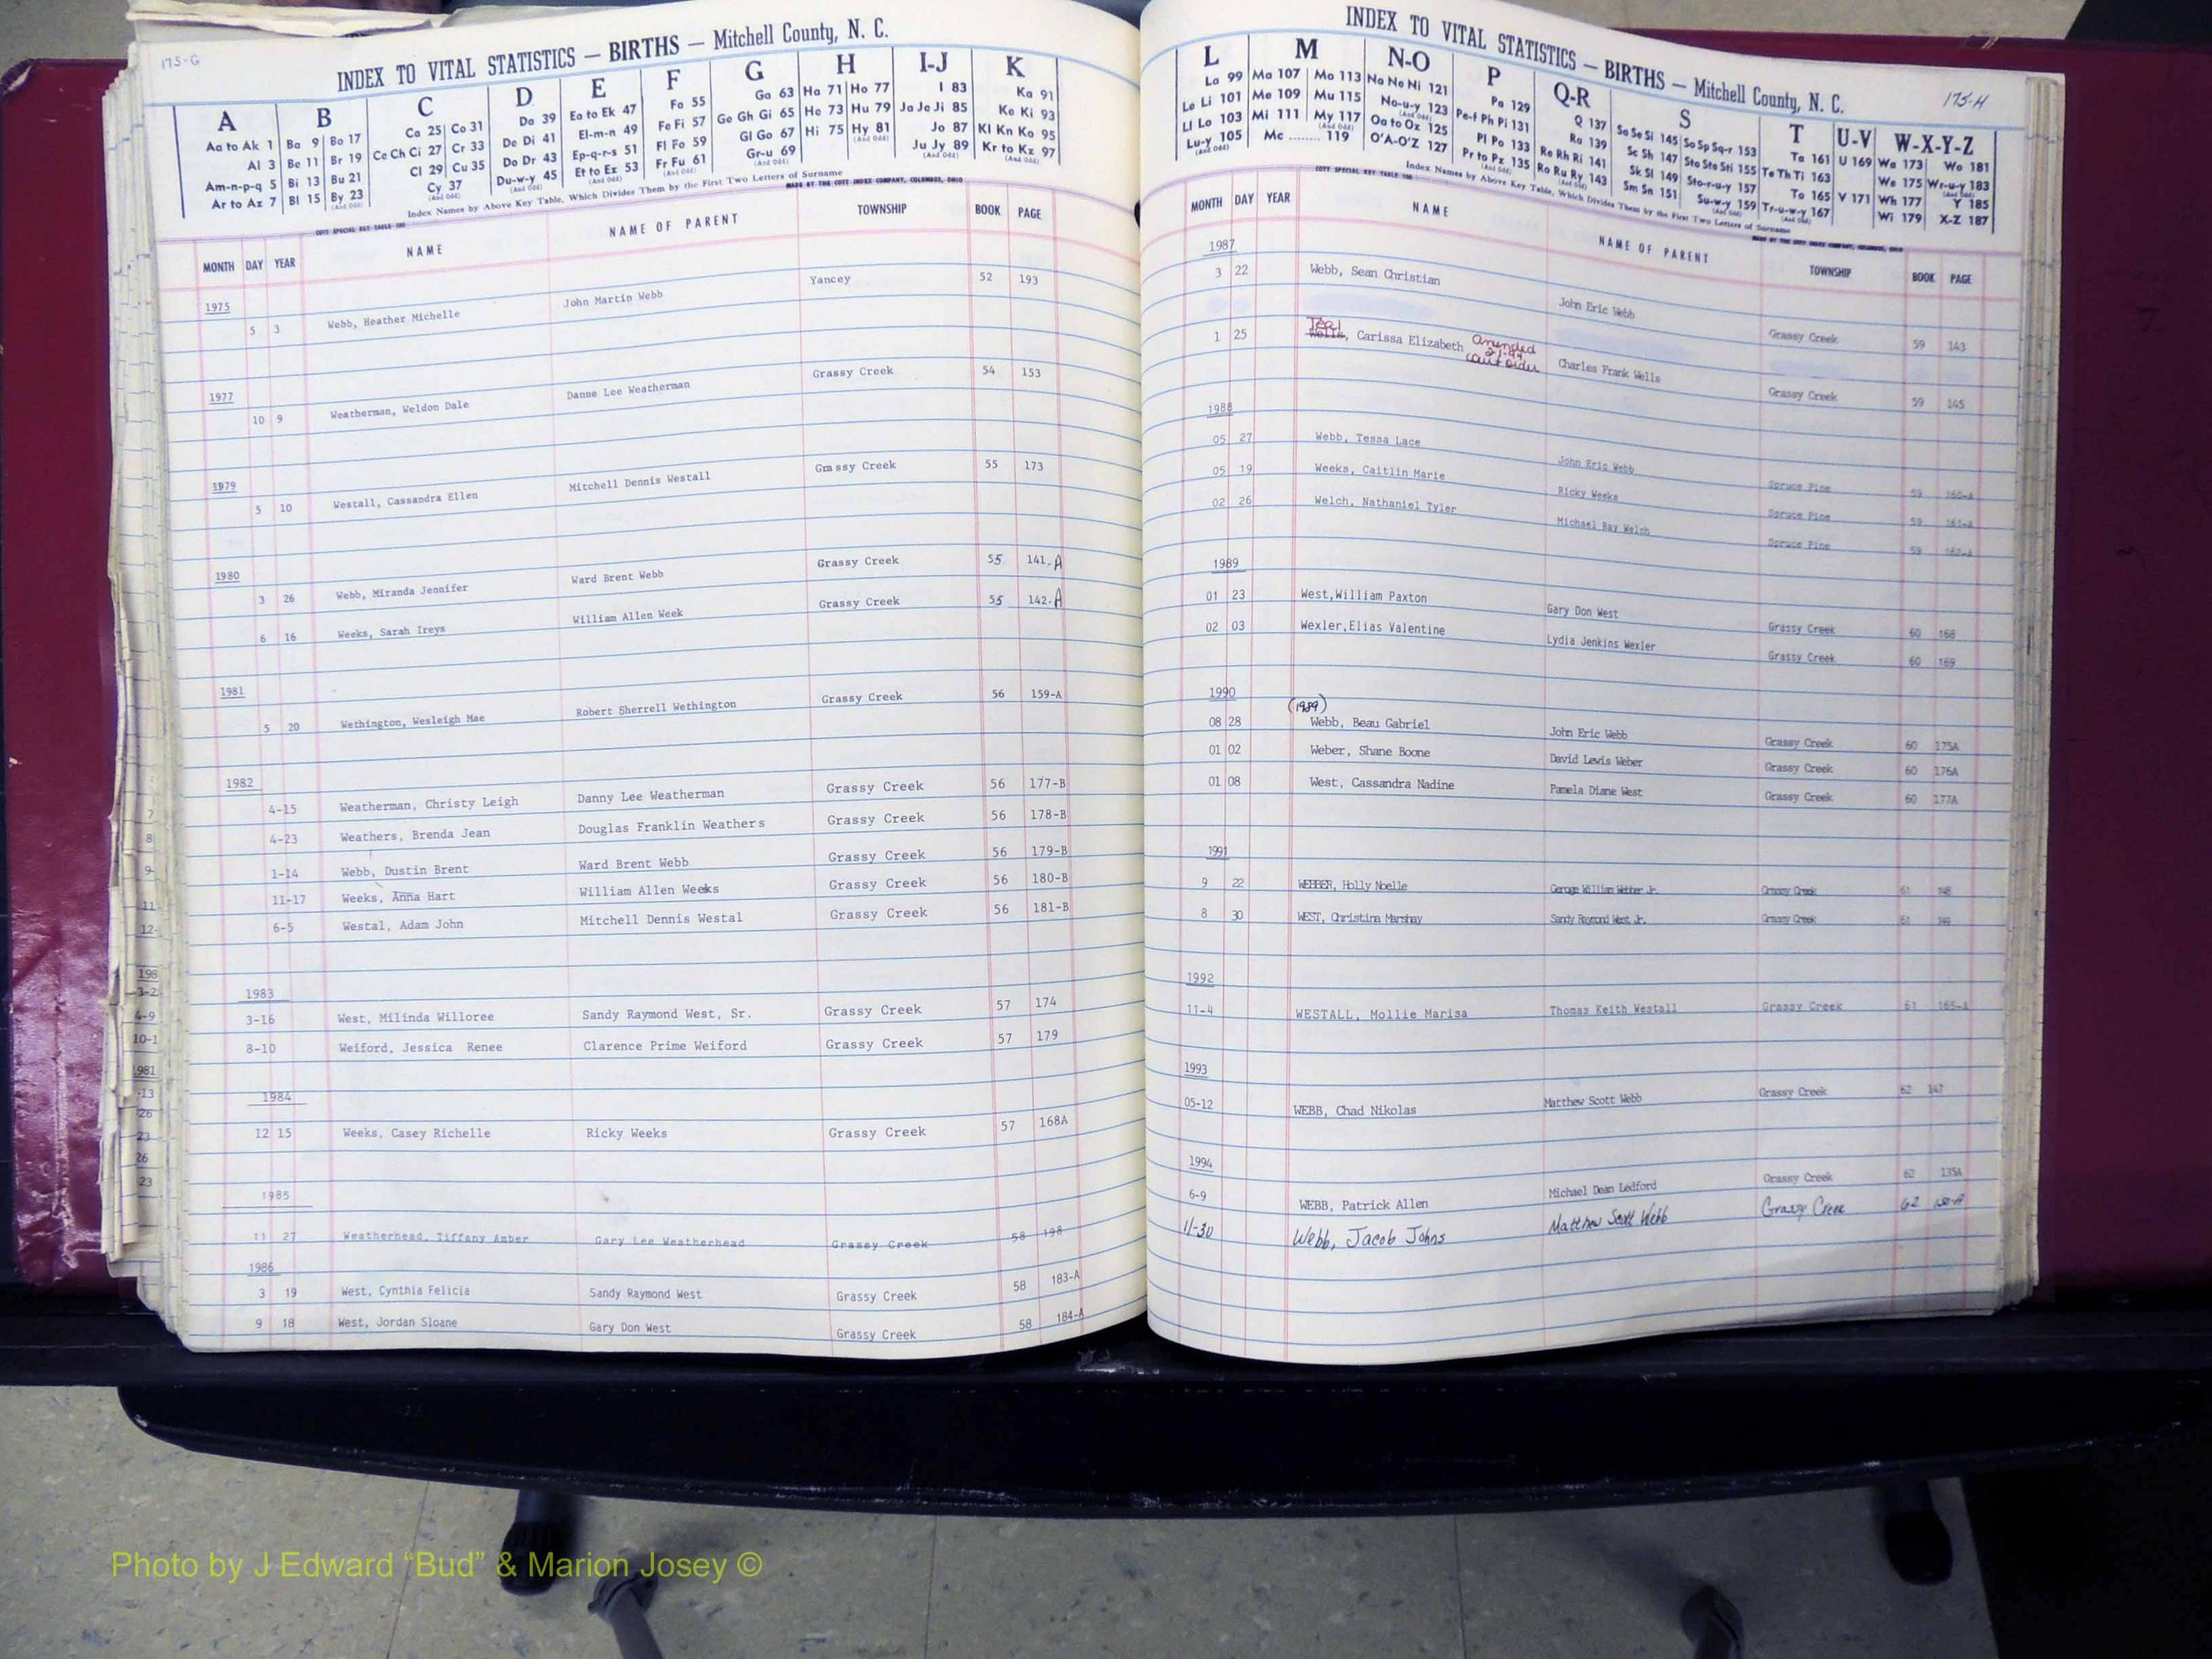 175-G
INDEX TO VITAL STATISTICS — BIRTHS — Mitchell County, N. C.
A B C D E F G H I-J K
Aa to Ak 1 Ba 9 Bo 17 Ca 25 Co 31 Da 39 Ea to Ek 47 Fa 55 Ga 63 Ha 71 Ho 77 I 83 Ka 91
Al 3 Be 11 Br 19 Ce Ch Ci 27 Cr 33 De Di 41 El-m-n 49 Fe Fi 57 Ge Gh Gi 65 He 73 Hu 79 Ja Je Ji 85 Ke Ki 93
Am-n-p-q 5 Bi 13 Bu 21 Cl 29 Cu 35 Do Dr 43 Ep-q-r-s 51 Fl Fo 59 Gl Go 67 Hi 75 Hy 81 Jo 87 Kl Kn Ko 95
Ar to Az 7 Bl 15 By 23 Cy 37 Du-w-y 45 Et to Ez 53 Fr Fu 61 Gr-u 69 Ju Jy 89 Kr to Kz 97
Index Names by Above Key Table, Which Divides Them by the First Two Letters of Surname
COTT SPECIAL KEY TABLE 100 MADE BY THE COTT INDEX COMPANY, COLUMBUS, OHIO
MONTH DAY YEAR NAME NAME OF PARENT TOWNSHIP BOOK PAGE
1975
5 3 Webb, Heather Michelle John Martin Webb Yancey 52 193
1977
10 9 Weatherman, Weldon Dale Danne Lee Weatherman Grassy Creek 54 153
1979
5 10 Westall, Cassandra Ellen Mitchell Dennis Westall Grassy Creek 55 173
1980
3 26 Webb, Miranda Jennifer Ward Brent Webb Grassy Creek 55 141.A
6 16 Weeks, Sarah Ireys William Allen Week Grassy Creek 55 142.A
1981
5 20 Wethington, Wesleigh Mae Robert Sherrell Wethington Grassy Creek 56 159-A
1982
4-15 Weatherman, Christy Leigh Danny Lee Weatherman Grassy Creek 56 177-B
4-23 Weathers, Brenda Jean Douglas Franklin Weathers Grassy Creek 56 178-B
1-14 Webb, Dustin Brent Ward Brent Webb Grassy Creek 56 179-B
11-17 Weeks, Anna Hart William Allen Weeks Grassy Creek 56 180-B
6-5 Westal, Adam John Mitchell Dennis Westal Grassy Creek 56 181-B
1983
3-16 West, Milinda Willoree Sandy Raymond West, Sr. Grassy Creek 57 174
8-10 Weiford, Jessica Renee Clarence Prime Weiford Grassy Creek 57 179
1984
12 15 Weeks, Casey Richelle Ricky Weeks Grassy Creek 57 168A
1985
11 27 Weatherhead, Tiffany Amber Gary Lee Weatherhead Grassy Creek 58 198
1986
3 19 West, Cynthia Felicia Sandy Raymond West Grassy Creek 58 183-A
9 18 West, Jordan Sloane Gary Don West Grassy Creek 58 184-A
7
8
9
11
12-
198
3-2
4-9
10-1
1981
-13
26
23
26
23
175-H
INDEX TO VITAL STATISTICS — BIRTHS — Mitchell County, N. C.
L M N-O P Q-R S T U-V W-X-Y-Z
La 99 Ma 107 Mo 113 Na Ne Ni 121 Pa 129 Q 137 Sa Se Si 145 So Sp Sq-r 153 Ta 161 U 169 Wa 173 Wo 181
Le Li 101 Me 109 Mu 115 No-u-y 123 Pe-f Ph Pi 131 Ra 139 Sc Sh 147 Sta Ste Sti 155 Te Th Ti 163 We 175 Wr-u-y 183
Ll Lo 103 Mi 111 My 117 Oa to Oz 125 Pl Po 133 Re Rh Ri 141 Sk Sl 149 Sto-r-u-y 157 To 165 V 171 Wh 177 Y 185
Lu-y 105 Mc 119 O'A-O'Z 127 Pr to Pz 135 Ro Ru Ry 143 Sm Sn 151 Su-w-y 159 Tr-u-w-y 167 Wi 179 X-Z 187
Index Names by Above Key Table, Which Divides Them by the First Two Letters of Surname
COTT SPECIAL KEY TABLE 100 MADE BY THE COTT INDEX COMPANY, COLUMBUS, OHIO
MONTH DAY YEAR NAME NAME OF PARENT TOWNSHIP BOOK PAGE
1987
3 22 Webb, Sean Christian John Eric Webb Grassy Creek 59 143
1 25 Wells, Carissa Elizabeth Amended Charles Frank Wells Grassy Creek 59 145
1988
05 27 Webb, Tessa Lace John Eric Webb Spruce Pine 59 160-A
05 19 Weeks, Caitlin Marie Ricky Weeks Spruce Pine 59 161-A
02 26 Welch, Nathaniel Tyler Michael Ray Welch Spruce Pine 59 162-A
1989
01 23 West,William Paxton Gary Don West Grassy Creek 60 168
02 03 Wexler,Elias Valentine Lydia Jenkins Wexler Grassy Creek 60 169
1990
(1989)
08 28 Webb, Beau Gabriel John Eric Webb Grassy Creek 60 175A
01 02 Weber, Shane Boone David Lewis Weber Grassy Creek 60 176A
01 08 West, Cassandra Nadine Pamela Diane West Grassy Creek 60 177A
1991
9 22 WEBBER, Holly Noelle Geroge William Webber Jr. Grassy Creek 61 148
8 30 WEST, Christina Marshay Sandy Raymond West Jr. Grassy Creek 61 149
1992
11-4 WESTALL, Mollie Marisa Thomas Keith Westall Grassy Creek 61 165-A
1993
05-12 WEBB, Chad Nikolas Matthew Scott Webb Grassy Creek 62 147
1994
6-9 WEBB, Patrick Allen Michael Dean Ledford Grassy Creek 62 135A
11-30 Webb, Jacob Johns Matthew Scott Webb Grassy Creek 62
Photo by J Edward “Bud” & Marion Josey ©